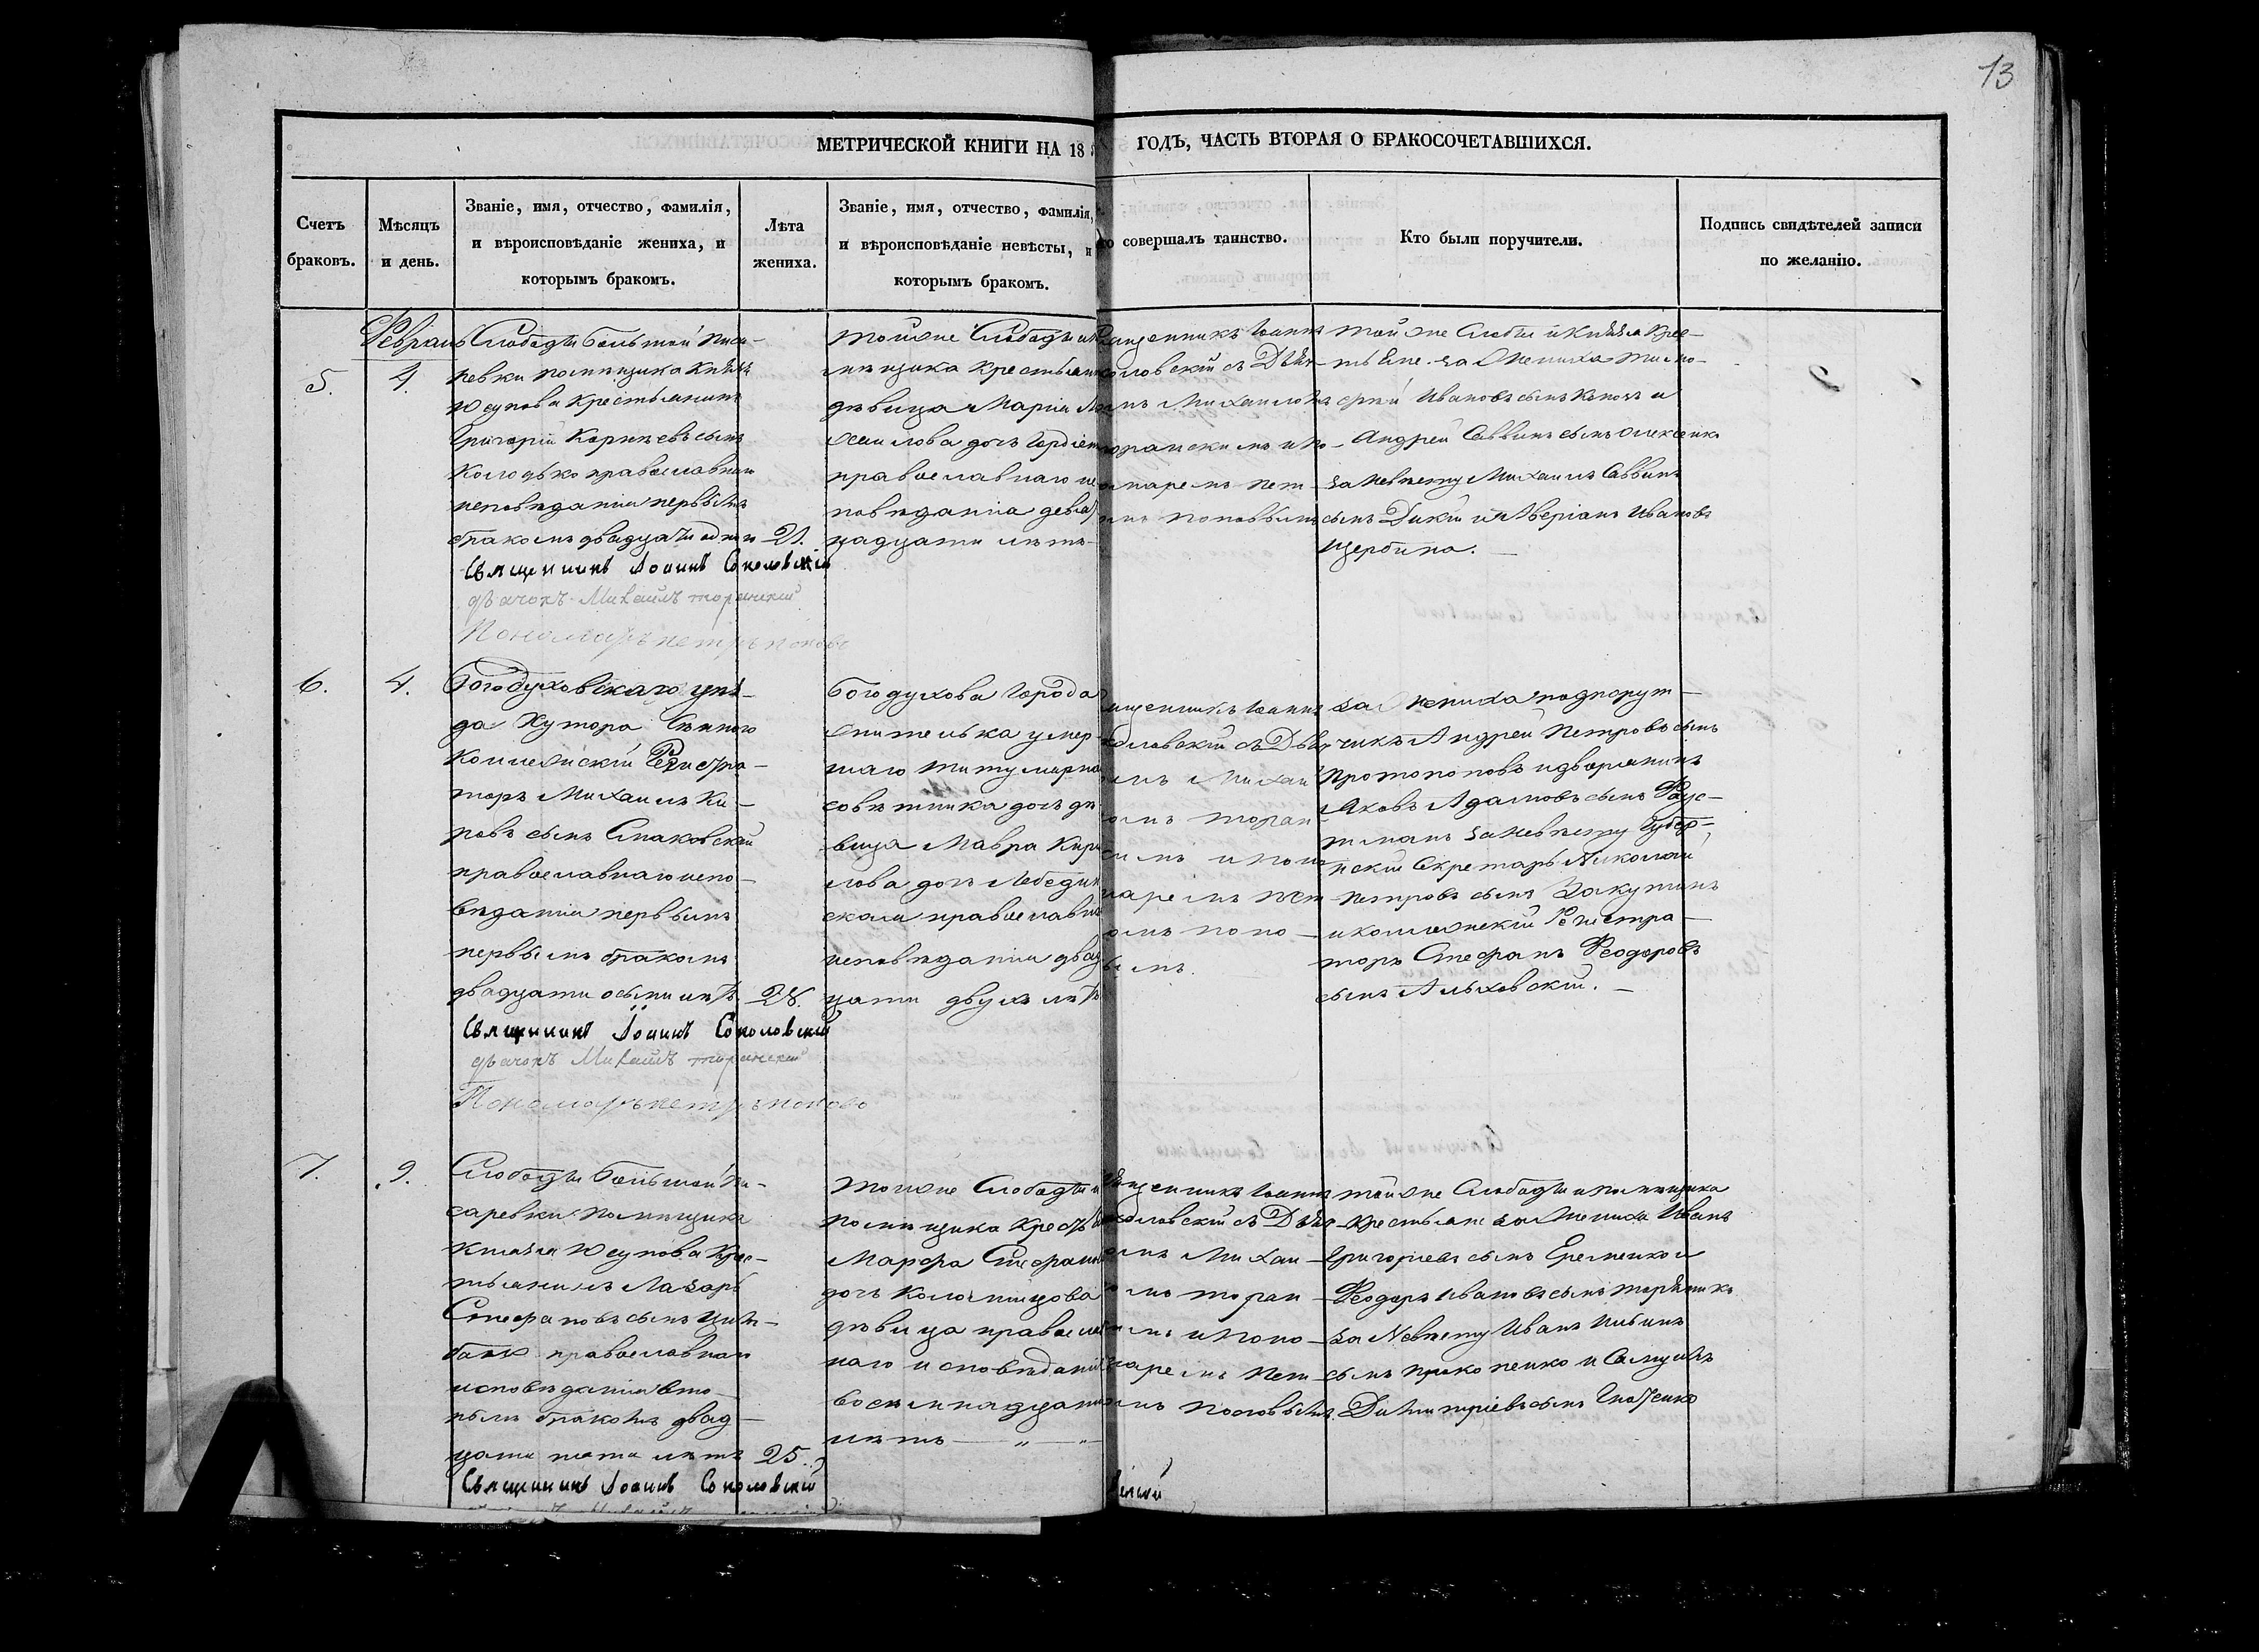 13
МЕТРИЧЕСКОЙ КНИГИ НА 18
ГОДЪ, ЧАСТЬ ВТОРАЯ О БРАКОСОЧЕТАВШИХСЯ.
Счетъ
браковъ.
Мѣсяцъ
и день.
Званіе, имя, отчество, фамилія,
и вѣроисповѣданіе жениха, и
которымъ бракомъ.
Лѣта
жениха.
Званіе, имя, отчество, фамилія,
и вѣроисповѣданіе невѣсты, и
которымъ бракомъ.
совершалъ таинство.
Кто были поручители.
Подпись свидѣтелей записи
по желанію.
5.
Февраль
4.
Слободы большой Писа-
ревки помѣщика Князя
Юсупова крестьянинъ
Григорій Корнѣевъ сынъ
православнаго
исповѣданія первымъ
бракомъ двадцати
21.
Священникъ Іоаннъ Соколовскій
дьячокъ Михаилъ торанскій
Пономарь петръ поповъ
тойже Слободы
мѣщика крестьян
дѣвица Марія
дочь
православнаго
повѣданія девят
надцати лѣтъ
вященникъ Іоаннъ
коловскій съ Дьяч
омъ Михаиломъ
торанскимъ и по
номаремъ пет
поповымъ
той же Слободы и Князя Кре-
за жениха тимо-
Ивановъ сынъ и
Андрей Саввинъ сынъ Олексенко
за невѣсту Михаилъ Саввинъ
сынъ Дикій и Аверіанъ Ивановъ
Щербина.
6.
4.
Богодуховскаго уѣз-
да Хутора Сѣннаго
Коллежскій Регистра-
торъ Михаилъ Ки-
ровъ сынъ Спаковскій
православнаго испо-
вѣданія первымъ
первымъ бракомъ
двадцати осьми лѣтъ
28.
Священникъ Іоаннъ Соколовскій
дьячокъ Михаилъ торанскій
Пономарь петръ поповъ
Богодухова города
жителька умер-
шаго титулярна
совѣтника дочь дѣ
вица Мавра Кири
лова дочь Лебедин
ская православна
исповѣданія двад
цати двухъ лѣтъ
ященникъ Іоаннъ
коловскій съ Дьяч
омъ Михаи
омъ торан
имъ и поно
маремъ пет
омъ попо
вымъ.
за жениха подпорут-
чикъ Андрей Петровъ сынъ
Протопоповъ и дворянинъ
Яковъ Адамовъ сынъ Фаус-
тманъ за невѣсту Губер-
нскій Секретарь Николай
Петровъ сынъ Закутинъ
и коллежскій Регистра-
торъ Стефанъ Феодоровъ
сынъ Альховскій.
7.
9.
Слободы большой Пи-
саревки помѣщика
Князя Юсупова Крес-
тьянинъ Лазарь
Стефановъ сынъ
православнаго
исповѣданія вто-
рымъ бракомъ двад-
цати пяти лѣтъ
25.
Священникъ Іоаннъ Соколовскій
тойже Слободы и
помѣщика крестья
Марфа Стефанов
дочь Коломійцова
дѣвица православ
наго исповѣданія
восемнадцати
лѣтъ
вященникъ Іоаннъ
коловскій съ Дьяч
омъ Михаи
омъ торан
имъ и поно
маремъ Пет
омъ поповымъ.
той же Слободы и помѣщика
крестьяне за жениха Иванъ
Григоріевъ сынъ Еременко и
Феодоръ Ивановъ сынъ
за Невѣсту Иванъ
сынъ Прокопенко и Самуилъ
Димитріевъ сынъ Гнатенко